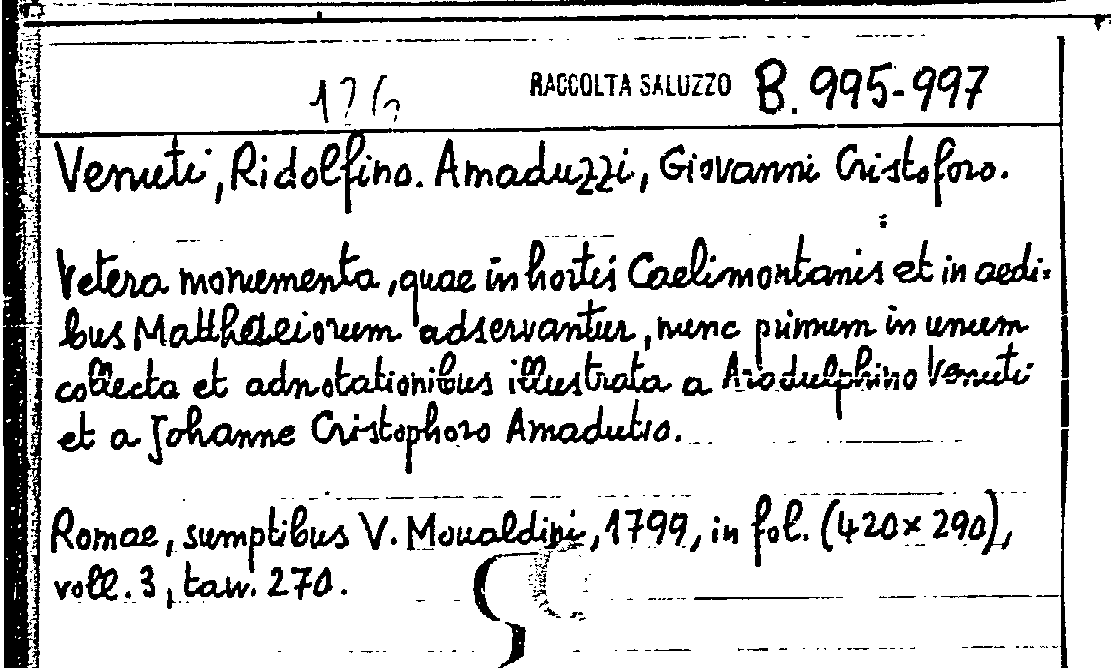 126 RACCOLTA SALUZZO B. 995-997
Venuti, Ridolfino. Amaduzzi, Giovanni Cristoforo.
Vetera monumenta, quae in hortis Caelimontanis et in aedi-
bus Matthaeiorum adservantur, nunc primum in unum
collecta et adnotationibus illustrata a Rodulphino Venuti
et a Johanne Cristophoro Amadutio.
Romae, sumptibus V. Monaldini, 1799, in fol. (420 × 290),
voll. 3, tavv. 270.